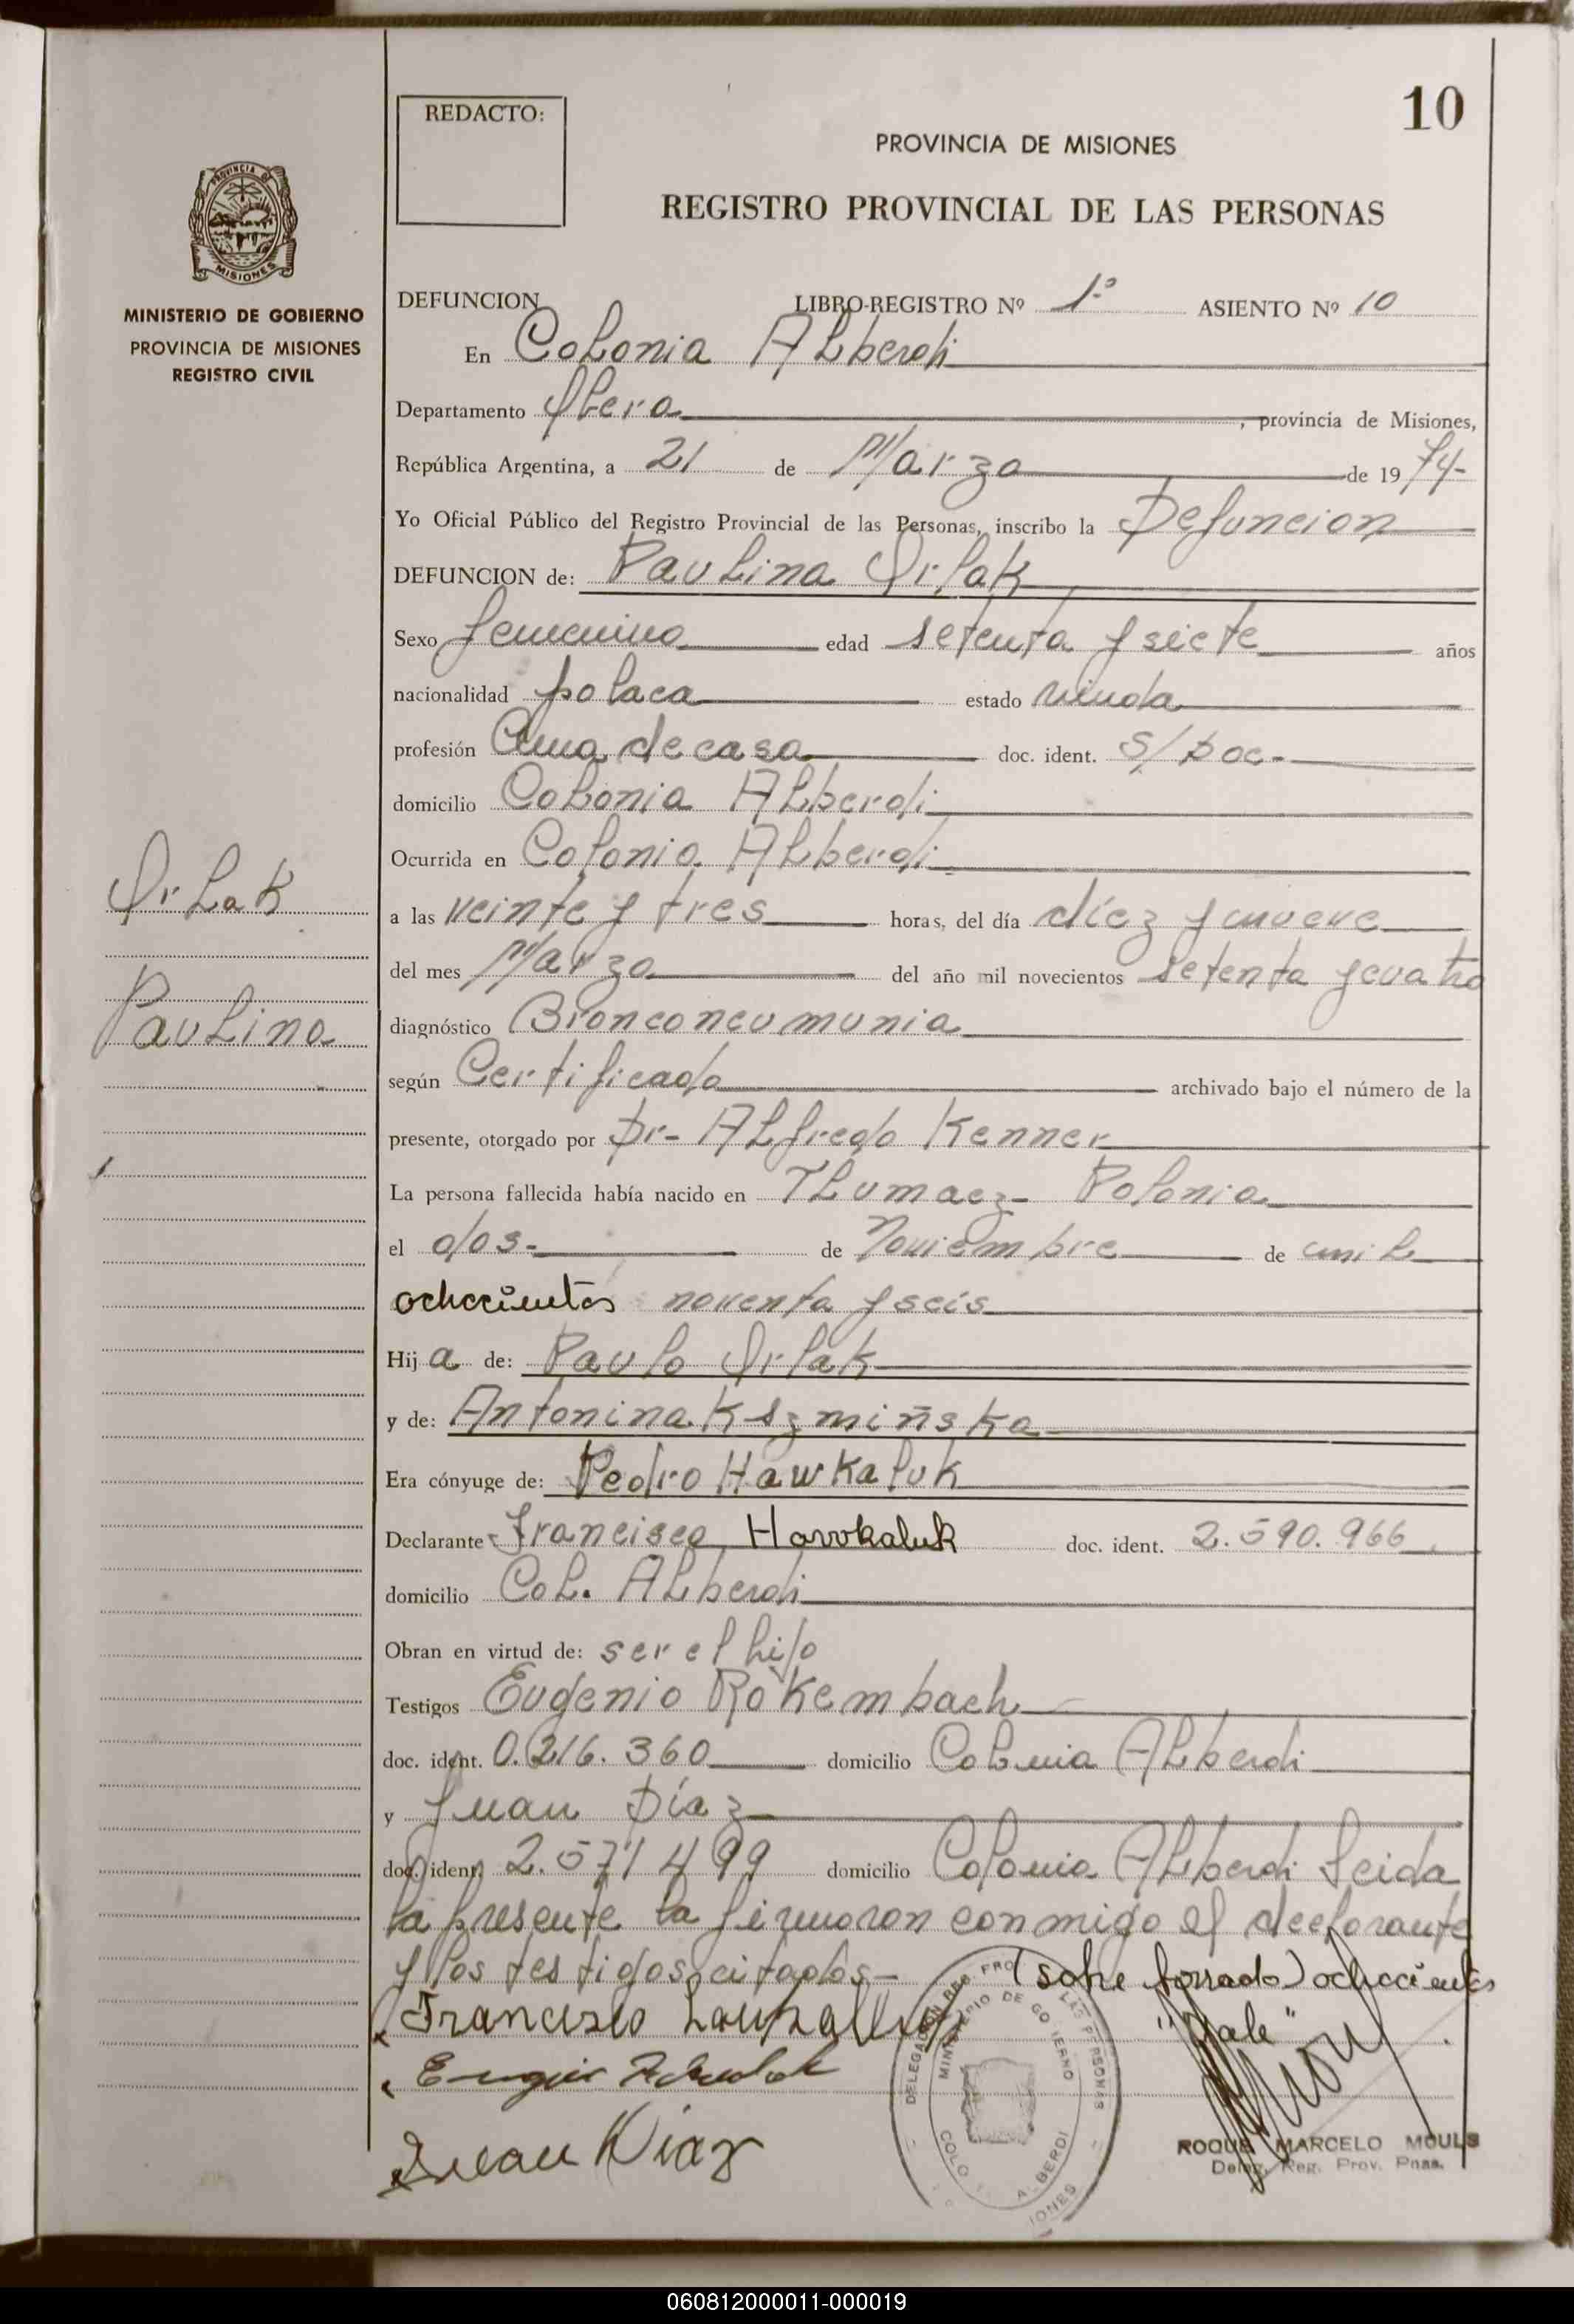 10
REDACTO:
PROVINCIA DE MISIONES
REGISTRO PROVINCIAL DE LAS PERSONAS
PROVINCIA DE
MISIONES
MINISTERIO DE GOBIERNO
PROVINCIA DE MISIONES
REGISTRO CIVIL
DEFUNCION LIBRO-REGISTRO Nº 1º ASIENTO Nº 10
En Colonia Alberdi
Departamento Obera, provincia de Misiones,
República Argentina, a 21 de Marzo de 1974-
Yo Oficial Público del Registro Provincial de las Personas, inscribo la Defuncion
DEFUNCION de: Paulina Orlak
Sexo femenino edad setenta y siete años
nacionalidad polaca estado viuda
profesión Ama de casa doc. ident. S/Doc.-
domicilio Colonia Alberdi
Ocurrida en Colonia Alberdi
Orlak
a las veinte y tres horas, del día diez y nueve
del mes Marzo del año mil novecientos setenta y cuatro
Paulina
diagnóstico Bronconeumunia
según Certificado archivado bajo el número de la
presente, otorgado por Dr- Alfredo Kenner
La persona fallecida había nacido en Tlumacz- Polonia
el dos- de Noviembre de mil
ochocientos noventa y seis
Hij a de: Paulo Orlak
y de: Antonina Kszmińska
Era cónyuge de: Pedro Hawkaluk
Declarante Francisco Hawkaluk doc. ident. 2.590.966
domicilio Col. Alberdi
Obran en virtud de: ser el hijo
Testigos Eugenio Rokembach
doc. ident. 0.216.360 domicilio Colonia Alberdi
y Juan Díaz
doc. ident. 2.571499 domicilio Colonia Alberdi Leida
la presente la firmaron conmigo el declarante
y los testigos citados- (sobre borrado) ochocientos
"Vale"
Francisco
Juan Diaz
DELEGACION REG. PRO LAS PERSONAS
MINISTERIO DE GOBIERNO
COLO ALBERDI
IONES
ROQUE MARCELO MOULS
Deleg. Reg. Prov. Pnas.
060812000011-000019